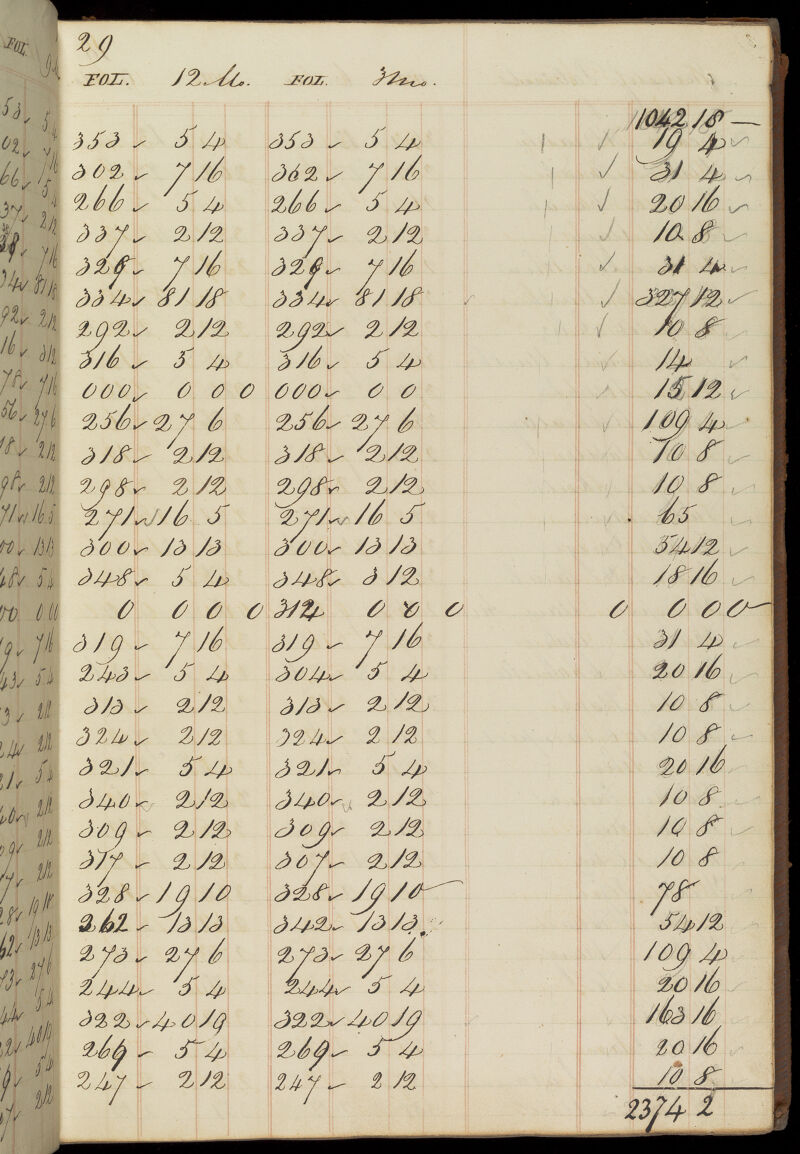 29
FOL. 12 Mo. FOL. 3 mo.
1042 18 —
353 ✓ 5 4 353 ✓ 5 4 ✓ 19 4 ✓
302 ✓ 7 16 302 ✓ 7 16 ✓ 31 4 ✓
266 ✓ 5 4 266 ✓ 5 4 ✓ 20 16 ✓
337 ✓ 2 12 337 ✓ 2 12 ✓ 10 8 ✓
329 ✓ 7 16 329 ✓ 7 16 ✓ 31 4 ✓
334 ✓ 81 18 334 ✓ 81 18 ✓ 327 12 ✓
292 ✓ 2 12 292 ✓ 2 12 ✓ 10 8 ✓
316 ✓ 5 4 316 ✓ 5 4 ✓ 14 ✓
000 ✓ 0 0 0 000 ✓ 0 0 ✓ 15 12 ✓
256 ✓ 27 6 256 ✓ 27 6 109 4 ✓
318 ✓ 2 12 318 ✓ 2 12 10 8 ✓
298 ✓ 2 12 298 ✓ 2 12 10 8 ✓
271 ✓ 16 5 271 ✓ 16 5 65 ✓
300 ✓ 13 13 300 ✓ 13 13 54 12 ✓
348 ✓ 5 4 348 ✓ 3 12 18 16 ✓
0 0 0 0 312 0 0 0 0 0 0 0
319 ✓ 7 16 319 ✓ 7 16 31 4 ✓
243 ✓ 5 4 304 ✓ 5 4 20 16 ✓
313 ✓ 2 12 313 ✓ 2 12 10 8 ✓
324 ✓ 2 12 324 ✓ 2 12 10 8 ✓
321 ✓ 5 4 321 ✓ 5 4 20 16
340 ✓ 2 12 340 ✓ 2 12 10 8 ✓
309 ✓ 2 12 309 ✓ 2 12 10 8 ✓
317 ✓ 2 12 307 ✓ 2 12 10 8
328 ✓ 19 10 328 ✓ 19 10 78
362 ✓ 13 13 342 ✓ 13 13 54 12
273 ✓ 27 6 273 ✓ 27 6 109 4 ✓
244 ✓ 5 4 244 ✓ 5 4 20 16 ✓
322 ✓ 40 19 322 ✓ 40 19 163 16
269 ✓ 5 4 269 ✓ 5 4 20 16 ✓
247 ✓ 2 12 247 ✓ 2 12 10 8
2374 2